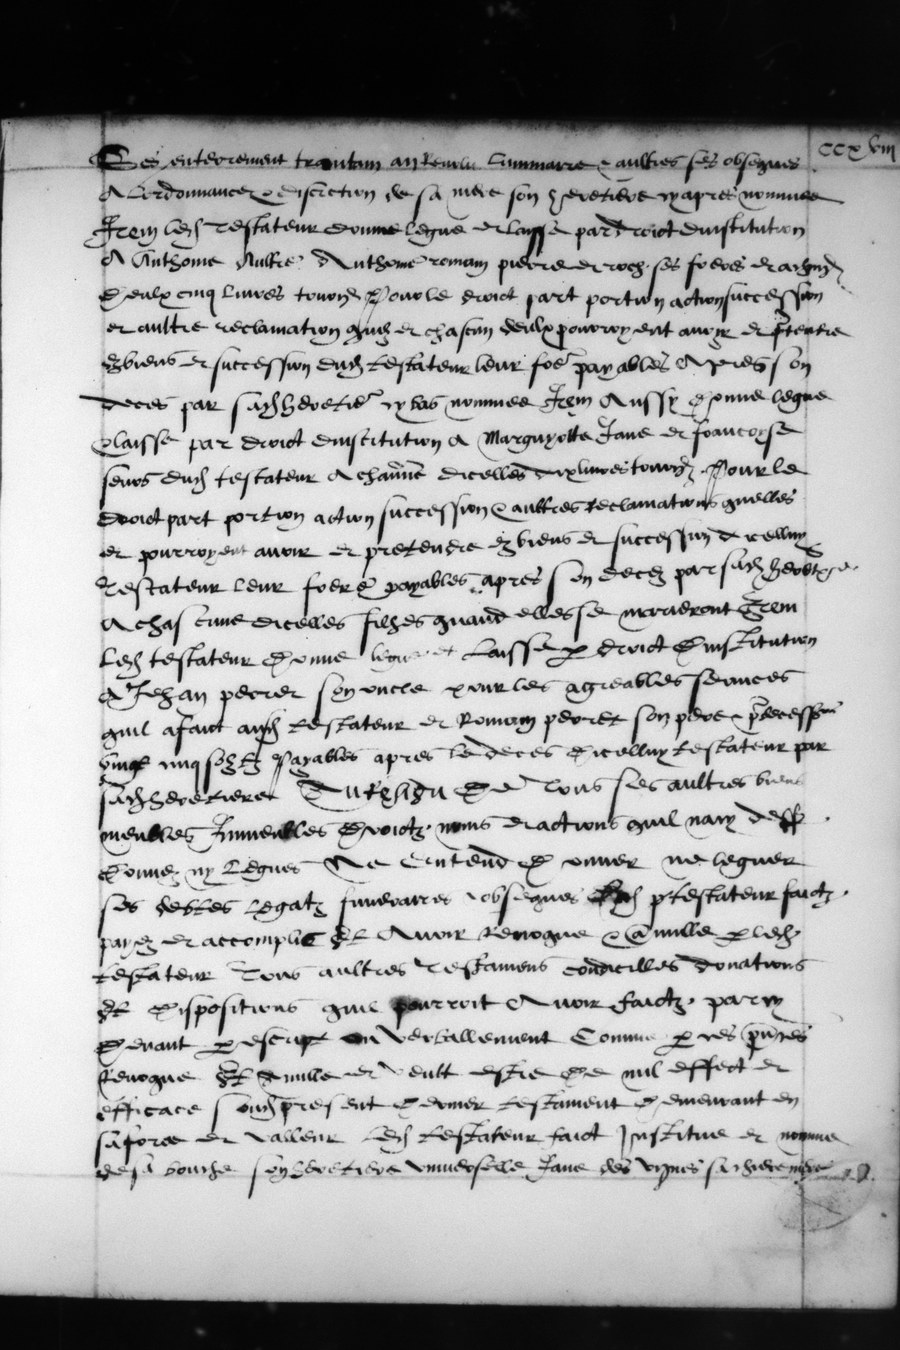 CCXVIII
Ses enterrement trantam an Revolu luminaire & aultres ses obseques
A Lordonnance & discretion de sa mere son heretiere cy apres nommee
Item led testateur donne legue et laisse par droict dinstitution
A Anthoine Aultre Anthoine romain pierre et roch ses freres et a chascun
Deulx cinq livres tourn Pour le droict part portion action succession
et aultre reclamation quilz et chascun deulx pourroyent avoir et pretendre
ez biens et succession dud testateur leur frere payables Apres son
deces par sad heretiere cy bas nommee Item Aussy Donne legue
& laisse par droict dinstitution A Marguyotte Jane et francoyse
seurs dud testateur A chacune dicelles dix livres tourn Pour le
droict part portion action succession & aultres reclamations quelles
et pourroyent avoir et pretendre ez biens et succession dicelluy
Testateur leur frere payables apres son deces par sad heretiere
A chascune dicelles filhes quand elles se marieront Item
Led testateur Donne legue et Laisse p droict Dinstitution
A Jehan perret son oncle pour les agreables services
quil a faict aud testateur et Romain perret son pere & predecesseur
vingt cinq solz tz Payables apres le deces Dicelluy testateur par
sad heretiere Du Residu De Tous ses aultres biens
meubles Immeubles Droictz noms et actions quil nay dess
Donnez ny Legues Ne Entend Donner ne leguer
ses debtes legatz funeraires obseques dud p testateur faictz
payez et accomplis Et Avoir Revoque & Anulle p led
testateur Tous aultres Testamens condicilles donations
Et Dispositions quil pourroit Avoir faictz par cy
Devant p escript ou Verballement Comme p ces presentes
Revoque Et anulle et Veult estre De nul effect et
efficace sond present Dernier testament Demeurant en
sa force et Valleur Led testateur faict Institue et nomme
de sa bouche son heretiere universelle Jane des vignes sa chiere mere